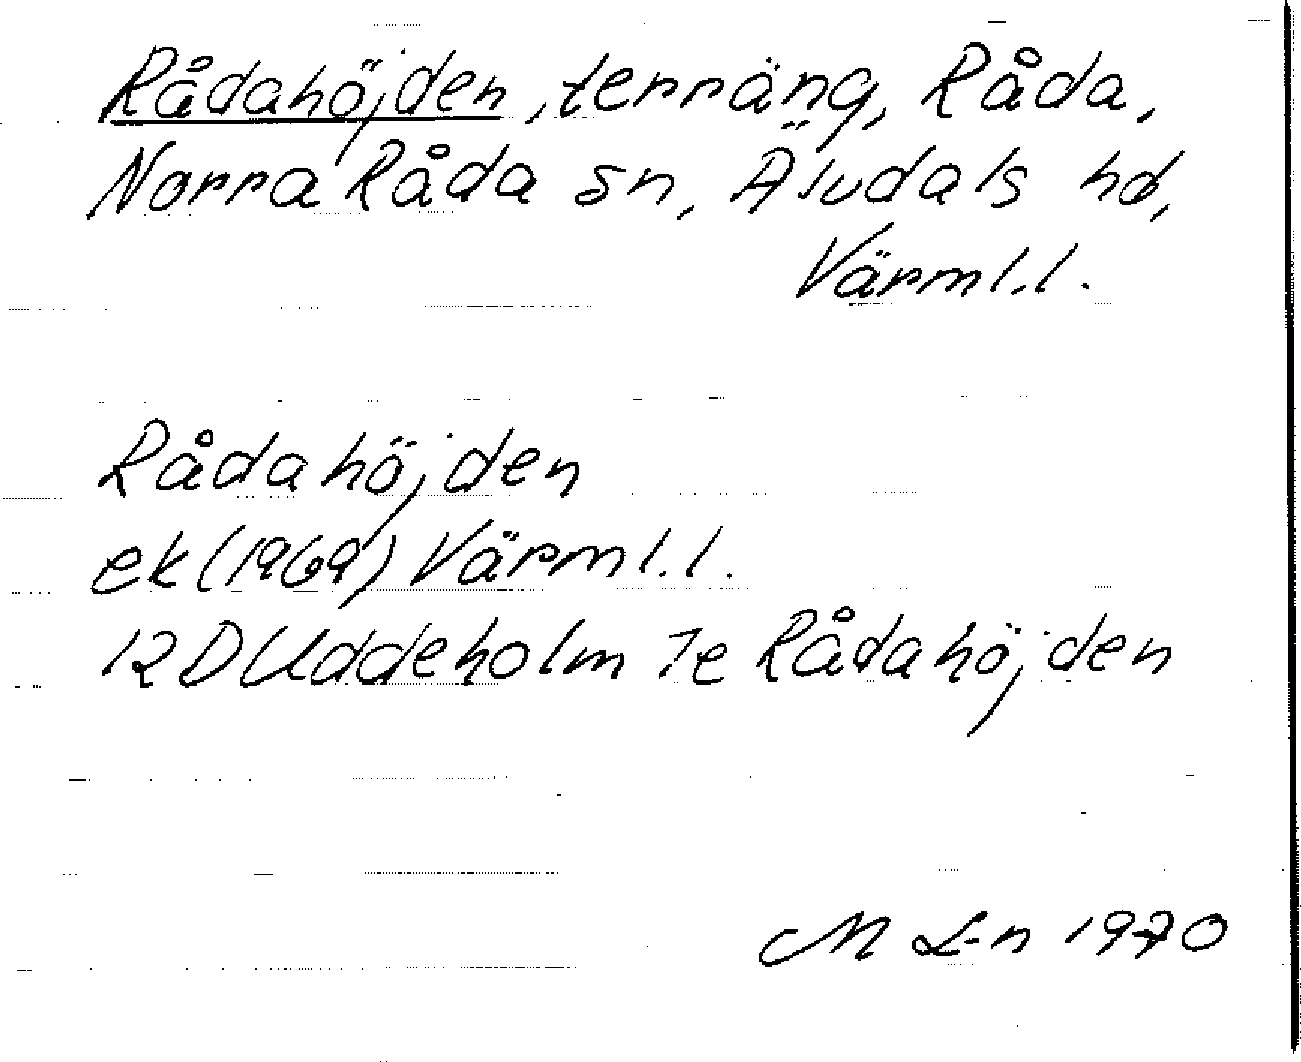 Rådahöjden, terräng, Råda,
Norra Råda sn, Älvdals hd,
Värml.l.
Rådahöjden
ek (1969) Värml.l.
12D Uddeholm 7e Rådahöjden
M L-n 1970